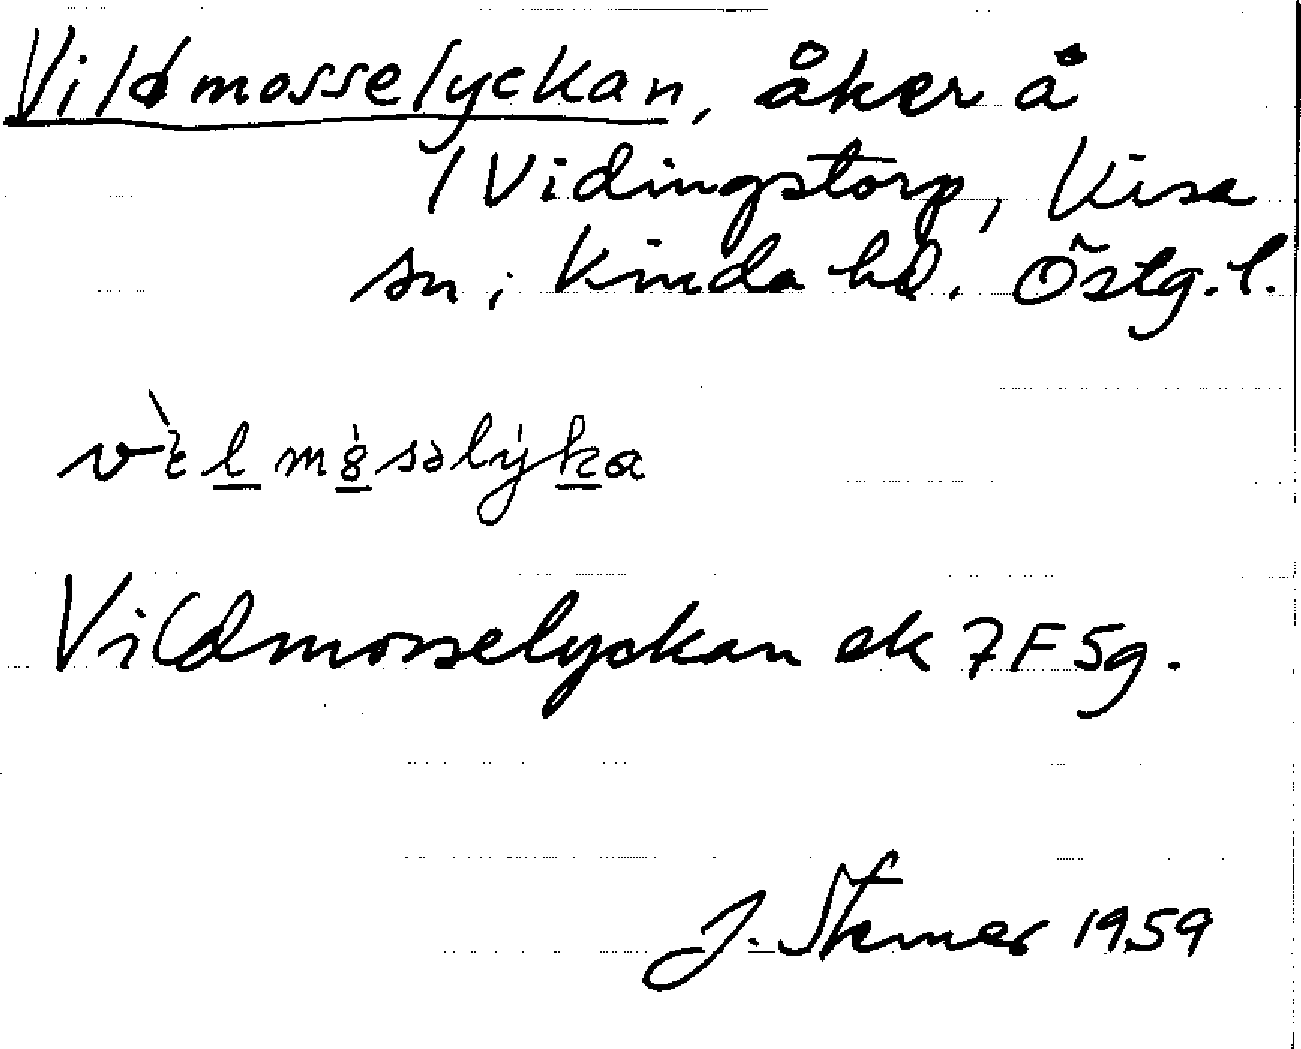 Vildmosselyckan, åker å
/ Vidingstorp, Kisa
sn, Kinda hd. Östg. l.
Vildmosselyckan ek 7F5g.
J. 1959